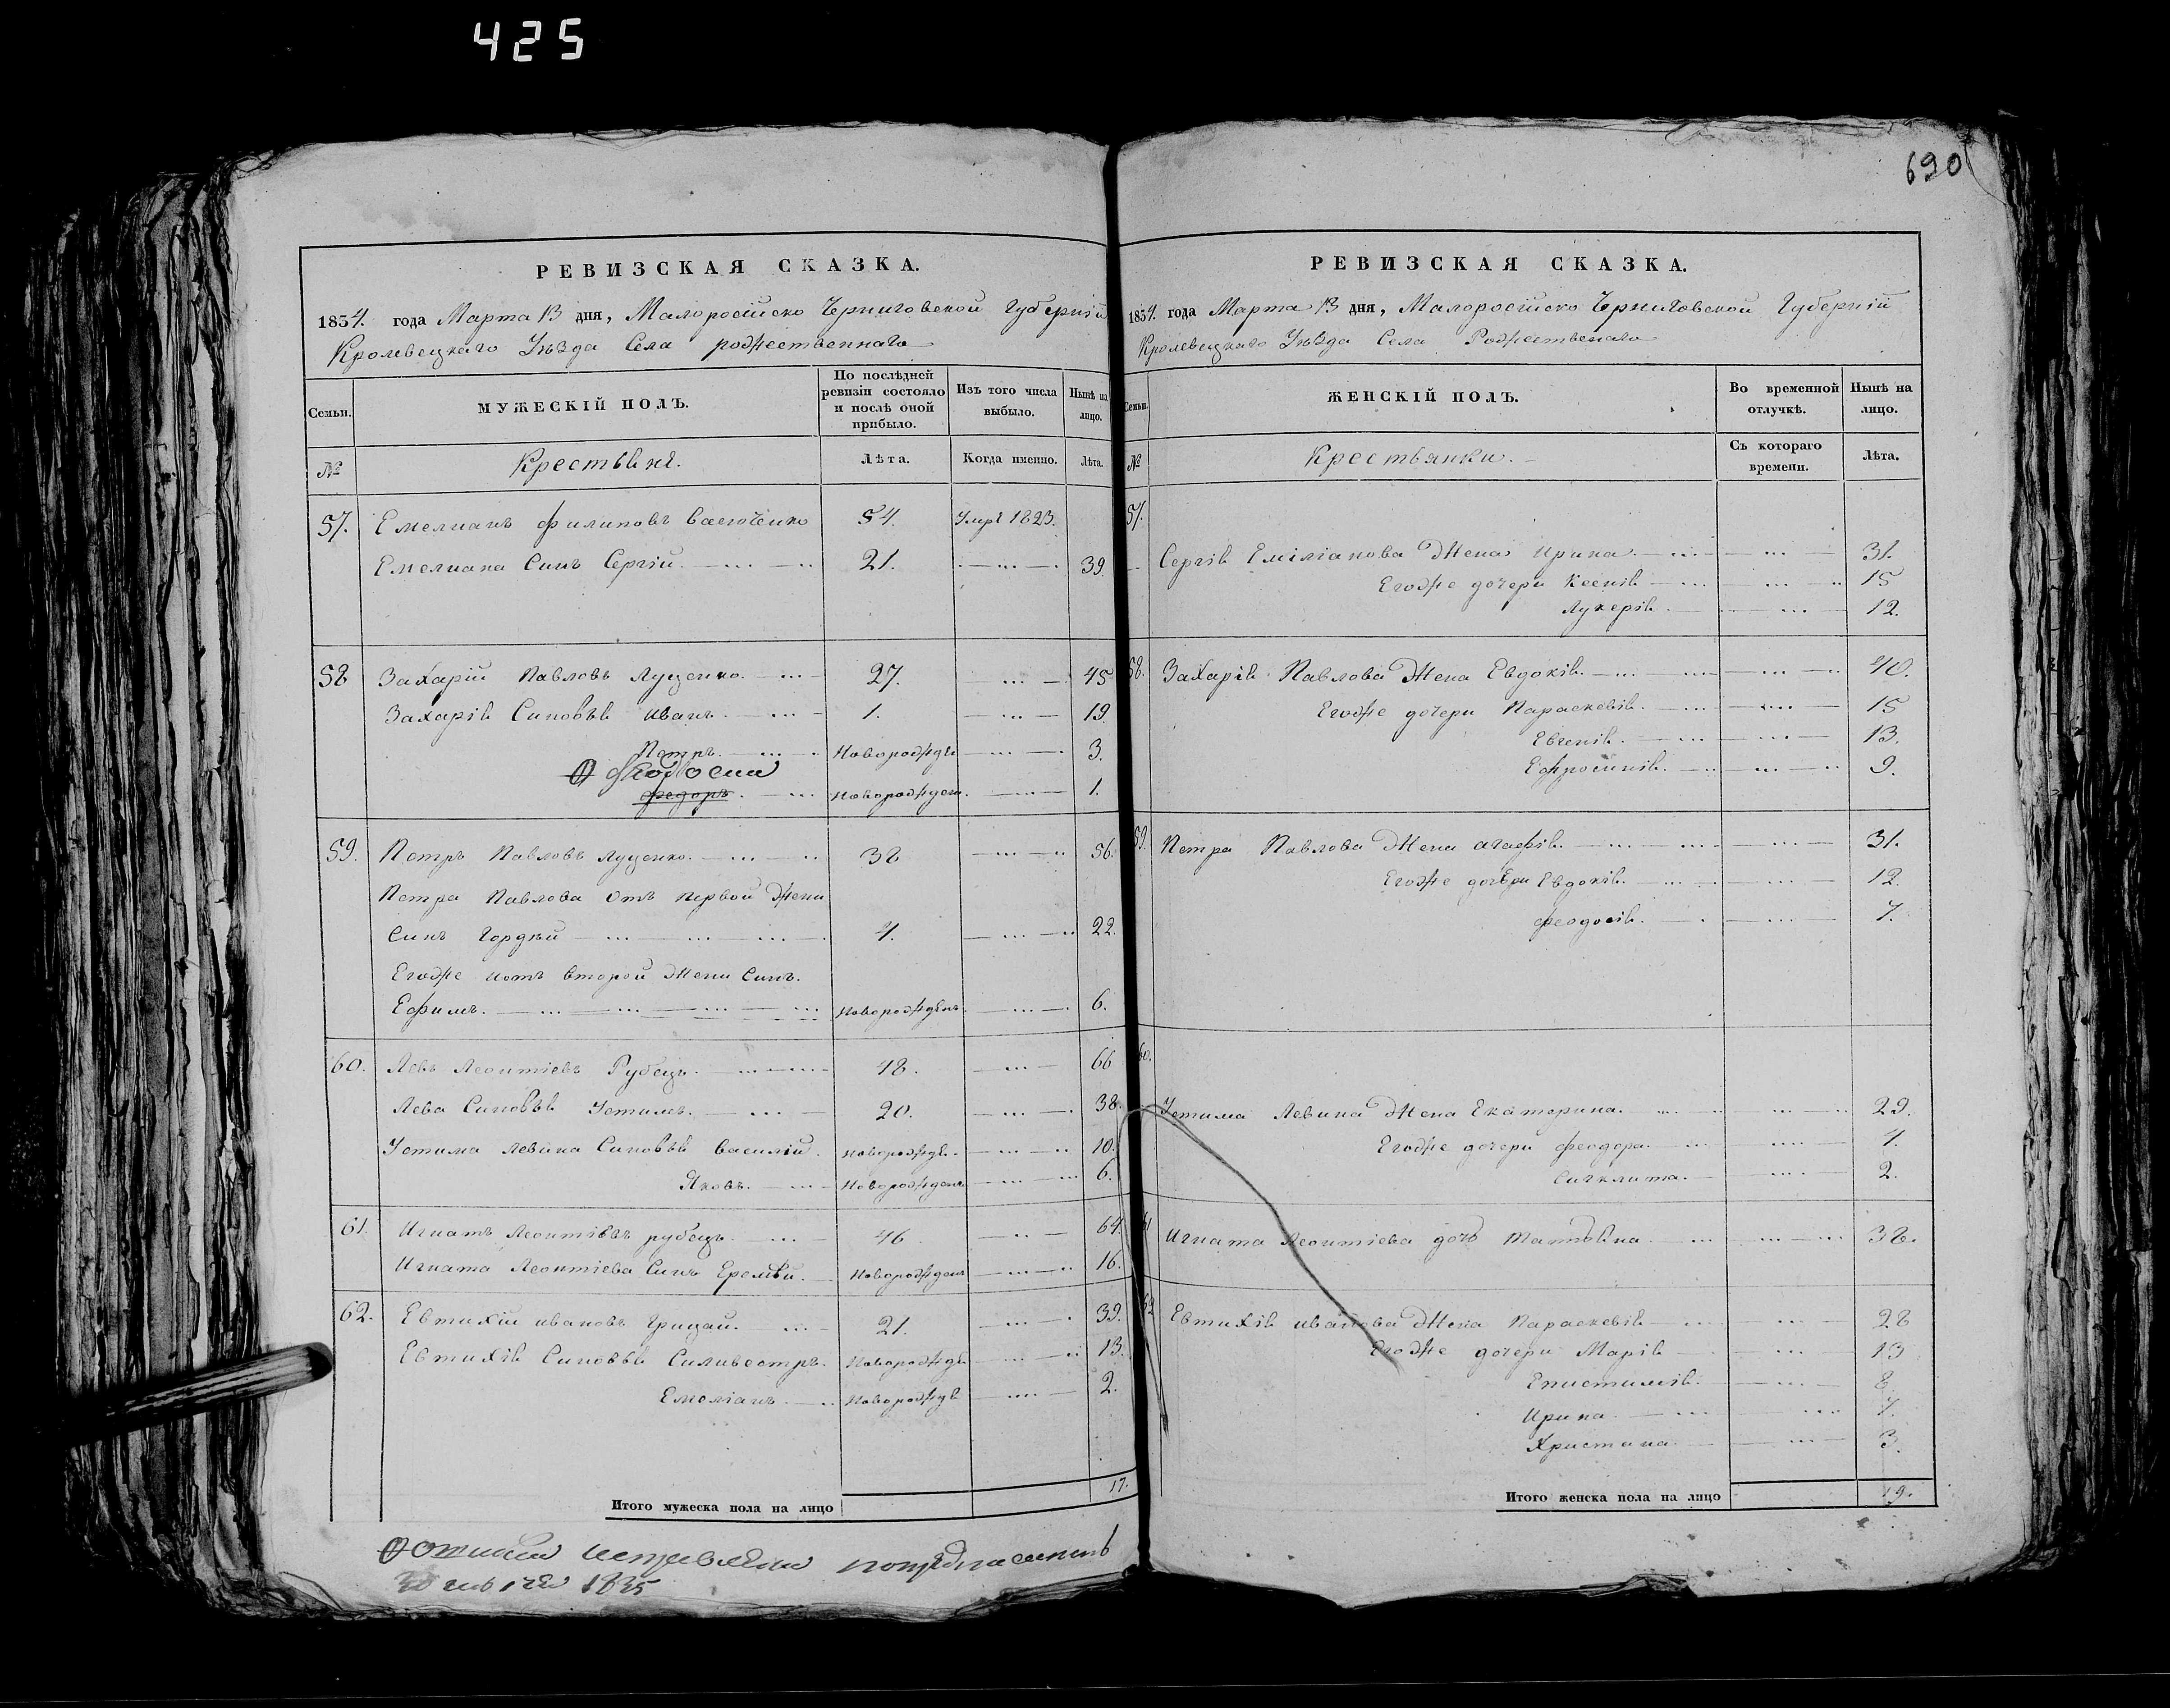 425
690
РЕВИЗСКАЯ СКАЗКА.
1834. года Марта 13 дня, Малоросійско Черниговской Губерніи
Кролевецкаго Уѣзда Села рождественнаго
Семьи. МУЖЕСКІЙ ПОЛЪ. По послѣдней ревизіи состояло и послѣ оной прибыло. Изъ того числа выбыло. Нынѣ на лицо.
№ Крестьяне. Лѣта. Когда именно. Лѣта.
57. Емелианъ Филиповъ Васюченко 54. Умръ 1823.
Емелиана Синъ Сергій. 21. 39
58 Захарій Павловъ Луценко. 27. 45
Захарія Синовья Иванъ. 1. 19.
Петръ. Новорожде 3.
Ѳеодосий
Федоръ. Новорожден. 1.
59. Петръ Павловъ Луценко. 38 56.
Петра Павлова Отъ Первой Жени
Синъ Гордѣй 4. 22.
Егоже иотъ второй Жени Синъ.
Ефимъ. Новорожденъ. 6.
60. Левъ Леонтіевъ Рубецъ. 48. 66
Лева Синовья Устимъ. 20. 38.
Устима Левина Синовья Василій. Новорожде. 10.
Яковъ. Новорожденъ 6.
61. Игнатъ Леонтіевъ рубецъ. 46 64.
Игната Леонтіева Синъ Еремѣй. Новорожденъ 16.
62. Евтихій Ивановъ Грицай. 21. 39.
Евтихія Синовья Силивестръ. Новорожде 13.
Емеліанъ. Новорожде 2.
Итого мужеска пола на лицо 17.
1835
РЕВИЗСКАЯ СКАЗКА.
1834. года Марта 13 дня, Малоросійско Черниговской Губерніи
Кролевецкаго Уѣзда Села Рождественаго
Семьи. ЖЕНСКІЙ ПОЛЪ. Во временной отлучкѣ. Нынѣ на лицо.
№ Крестьянки. Съ котораго времени. Лѣта.
57.
Сергія Еміліанова Жена Ирина. 31.
Егоже дочери Ксенія 15
Лукерія. 12.
58. Захарія Павлова Жена Евдокія. 40.
Егоже дочери Параскевія. 15
Евгенія. 13.
Ефросинія. 9.
59. Петра Павлова Жена Агафія. 31.
Егоже дочери Евдокія. 12.
Феодосія. 7.
60.
Устима Левина Жена Екатерина. 29.
Егоже дочери Феодора. 4.
Сигклита. 2.
61 Игната Леонтіева дочъ Татияна. 38.
62 Евтихія Иванова Жена Параскевія 28
Егоже дочери Марія 13
Епистимія. 8.
Ирина. 7.
Христина 3.
Итого женска пола на лицо 19.